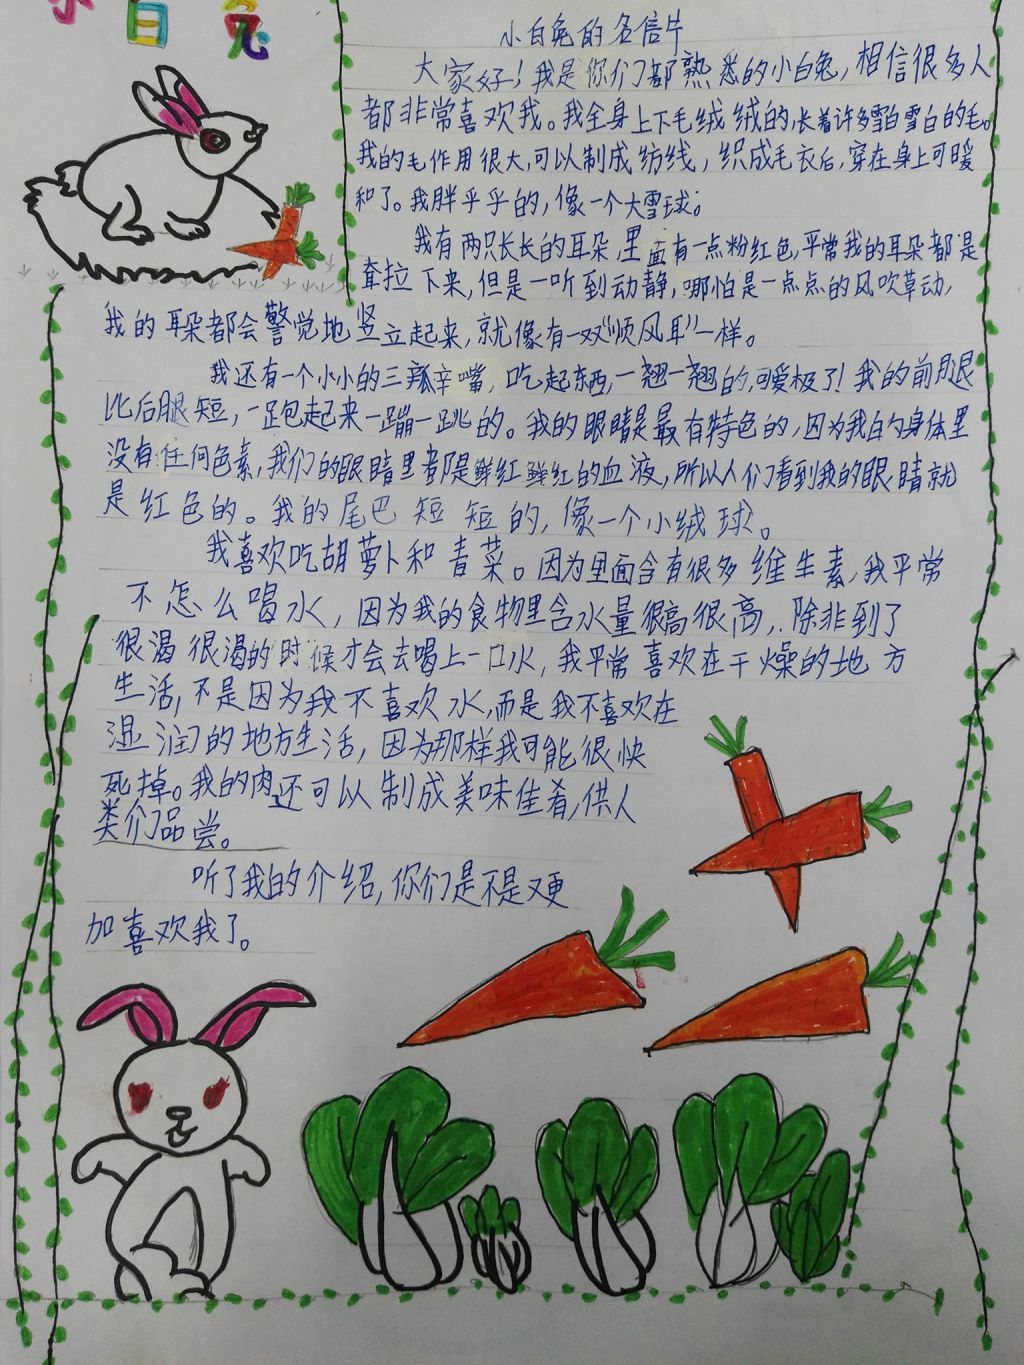 小白兔
小白兔的名信片
大家好！我是你们都熟悉的小白兔，相信很多人
都非常喜欢我。我全身上下毛绒绒的，长着许多雪白雪白的毛。
我的毛作用很大，可以制成纺线，织成毛衣后，穿在身上可暖
和了。我胖乎乎的，像一个大雪球。
我有两只长长的耳朵，里面有一点粉红色，平常我的耳朵都是
耷拉下来，但是一听到动静，哪怕是一点点的风吹草动，
我的耳朵都会警觉地竖立起来，就像有一双“顺风耳”一样。
我还有一个小小的三瓣辛嘴，吃起东西，一翘一翘的，可爱极了！我的前腿
比后腿短，一跑起来一蹦一跳的。我的眼睛是最有特色的，因为我的身体里
没有任何色素，我们的眼睛里都是鲜红鲜红的血液，所以人们看到我的眼睛就
是红色的。我的尾巴短短的，像一个小绒球。
我喜欢吃胡萝卜和青菜。因为里面含有很多维生素，我平常
不怎么喝水，因为我的食物里含水量很高很高，除非到了
很渴很渴的时候才会去喝上一口水，我平常喜欢在干燥的地方
生活，不是因为我不喜欢水，而是我不喜欢在
湿润的地方生活，因为那样我可能很快
死掉。我的肉还可以制成美味佳肴，供人
类们品尝。
听了我的介绍，你们是不是又更
加喜欢我了。